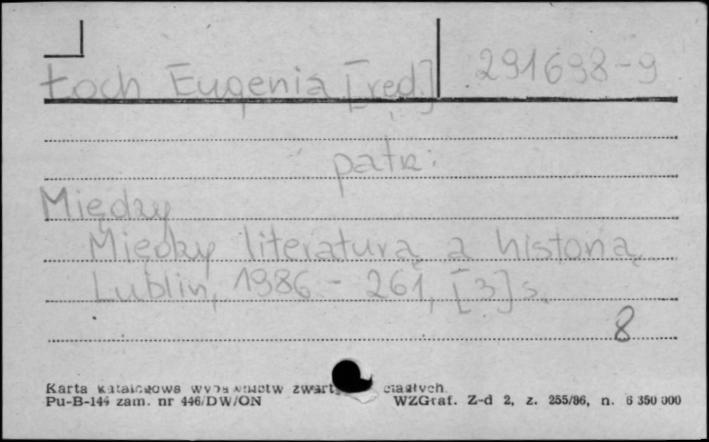 Łoch Eugenia [red.] 291698-9
patrz:
Między
Między literaturą a historią.
Lublin, 1986 - 261, [3] s.
8
Karta katalogowa wydawnictw zwart ciągłych
Pu-B-144 zam. nr 446/DW/ON WZGraf. Z-d 2, z. 255/86, n. 6 350 000